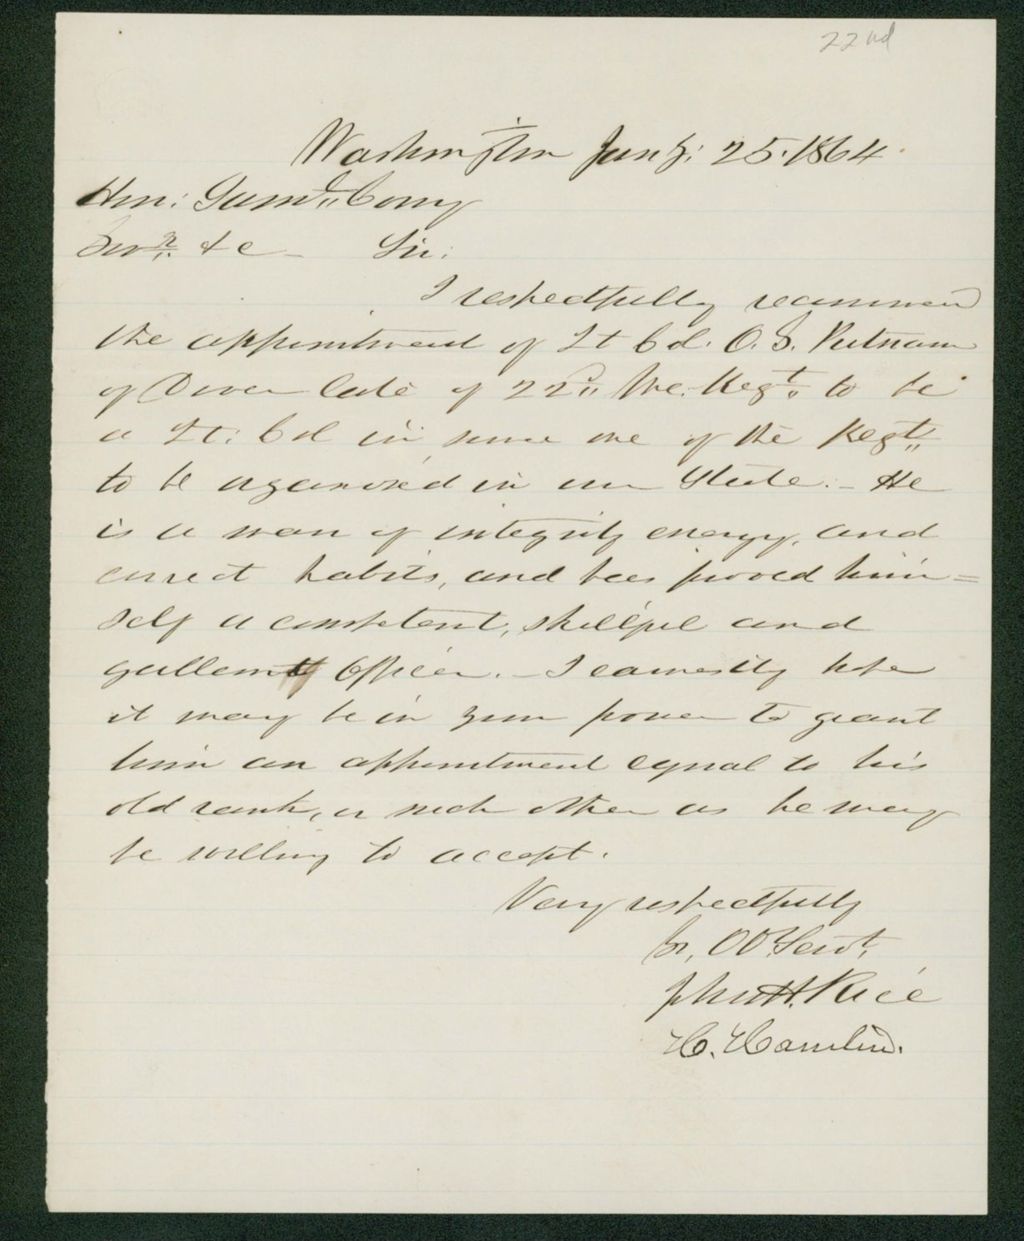 22nd
Washington Jany: 25. 1864.
Hon: Saml Cony
Govr &c - Sir:
I respectfully recommend
the appointment of Lt Col. O. S. Putnam
of Dover late of 22d Me. Regt to be
a Lt: Col in some one of the Regts
to be organized in our State. - He
is a man of integrity energy, and
correct habits, and has proved him=
self a competent, skillful and
gallant Officer. - I earnestly hope
it may be in your power to grant
him an appointment equal to his
old rank, or such other as he may
be willing to accept.
Very respectfully
Yr, Ob. Servt,
John H. Rice
H. Hamlin.